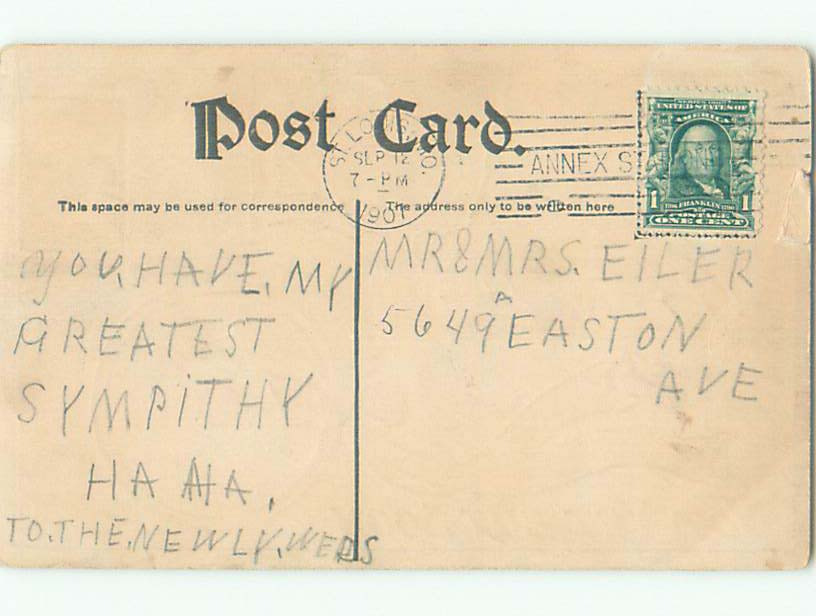 Post Card.
ST. LOUIS, MO.
SEP 12
7-PM
1907
ANNEX
SERIES 1902
UNITED STATES OF
AMERICA
1 FRANKLIN 1
POSTAGE
ONE CENT
This space may be used for correspondence
The address only to be written here
YOU. HAVE. MY
GREATEST
SYMPITHY
HA AHA.
TO. THE. NEWLY. WEDS
MR & MRS. EILER
5649A EASTON
AVE